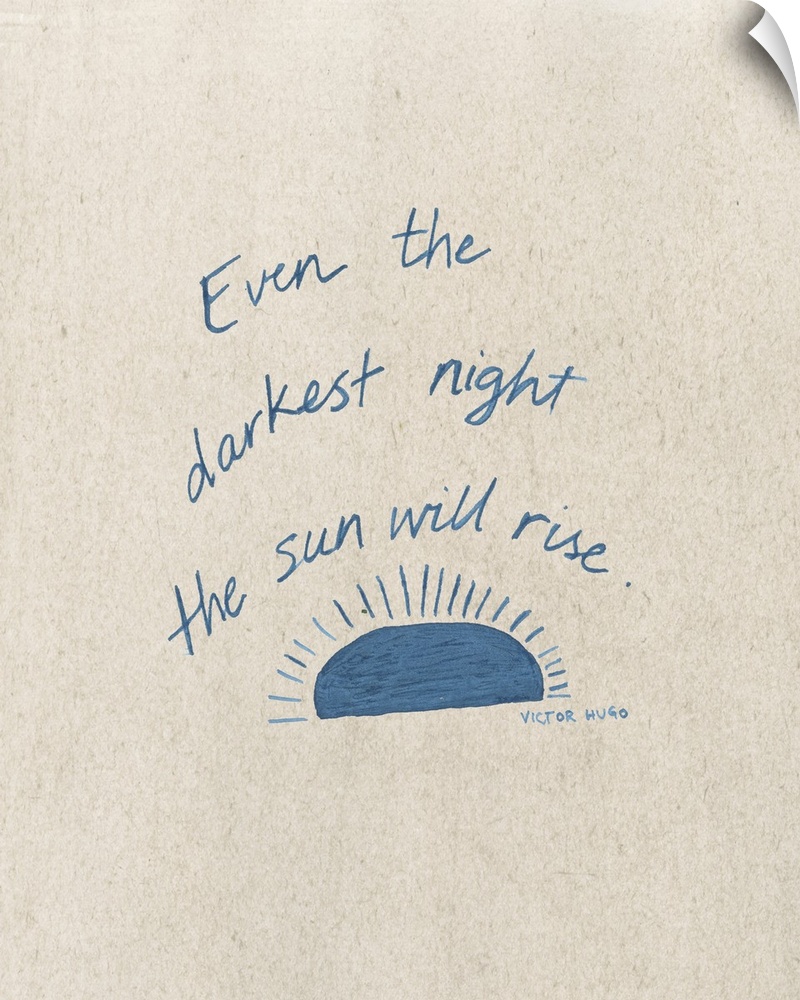 Even the
darkest night
the sun will rise.
VICTOR HUGO